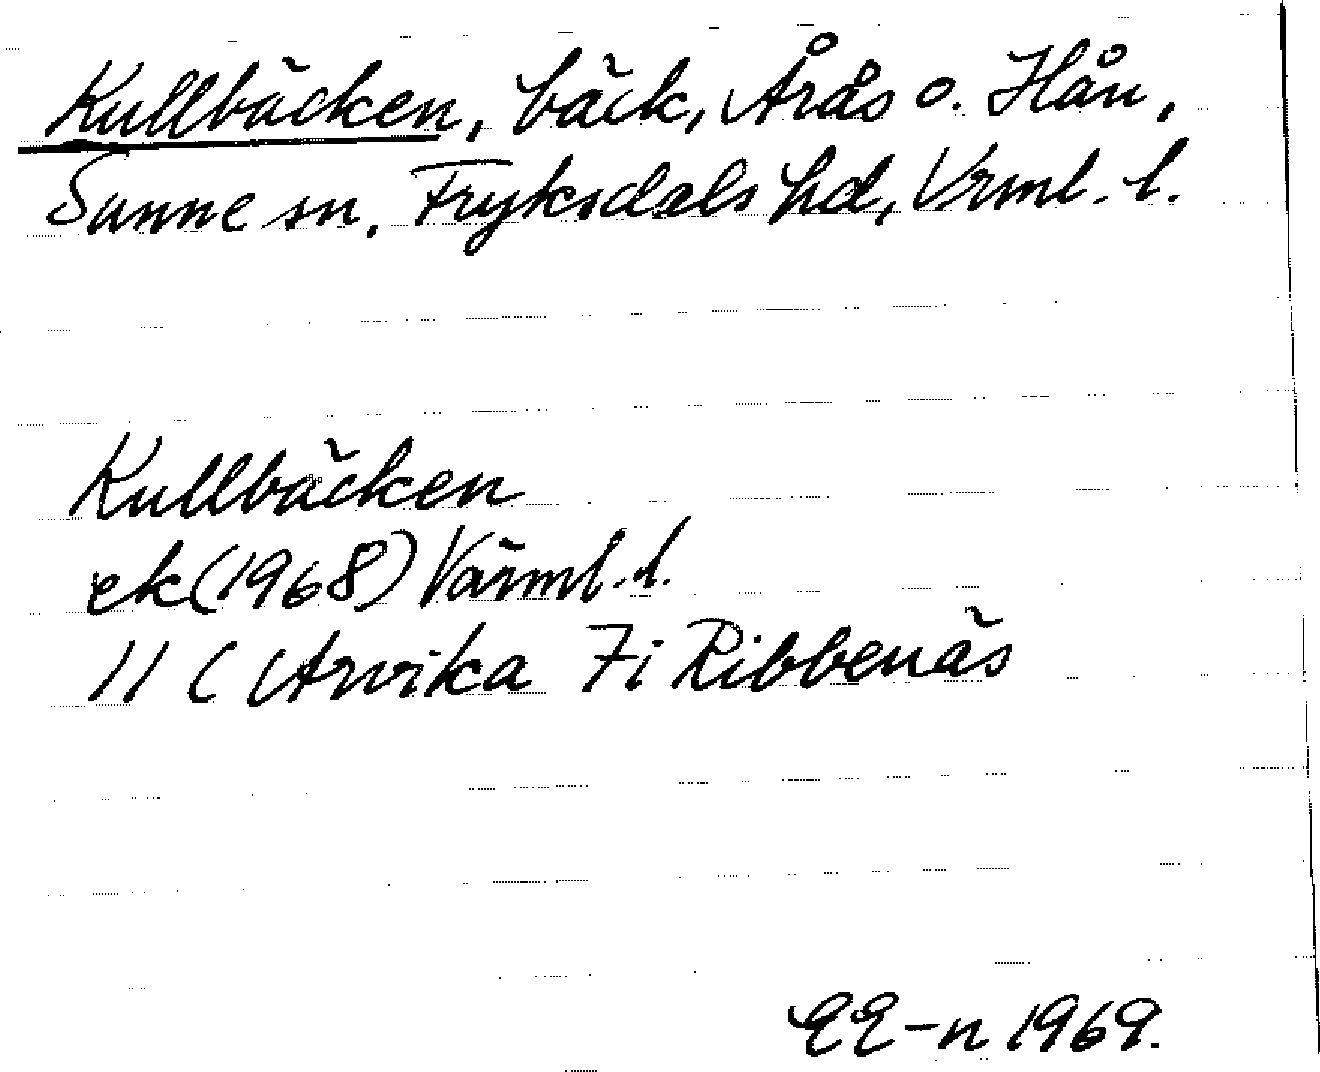 Kullbäcken, bäck, Årås o. Hån,
Sunne sn, Fryksdals hd, Vrml. l.
Kullbäcken
ek (1968) Värml. l.
11 C Arvika 7i Ribbenäs
EE-n 1969.